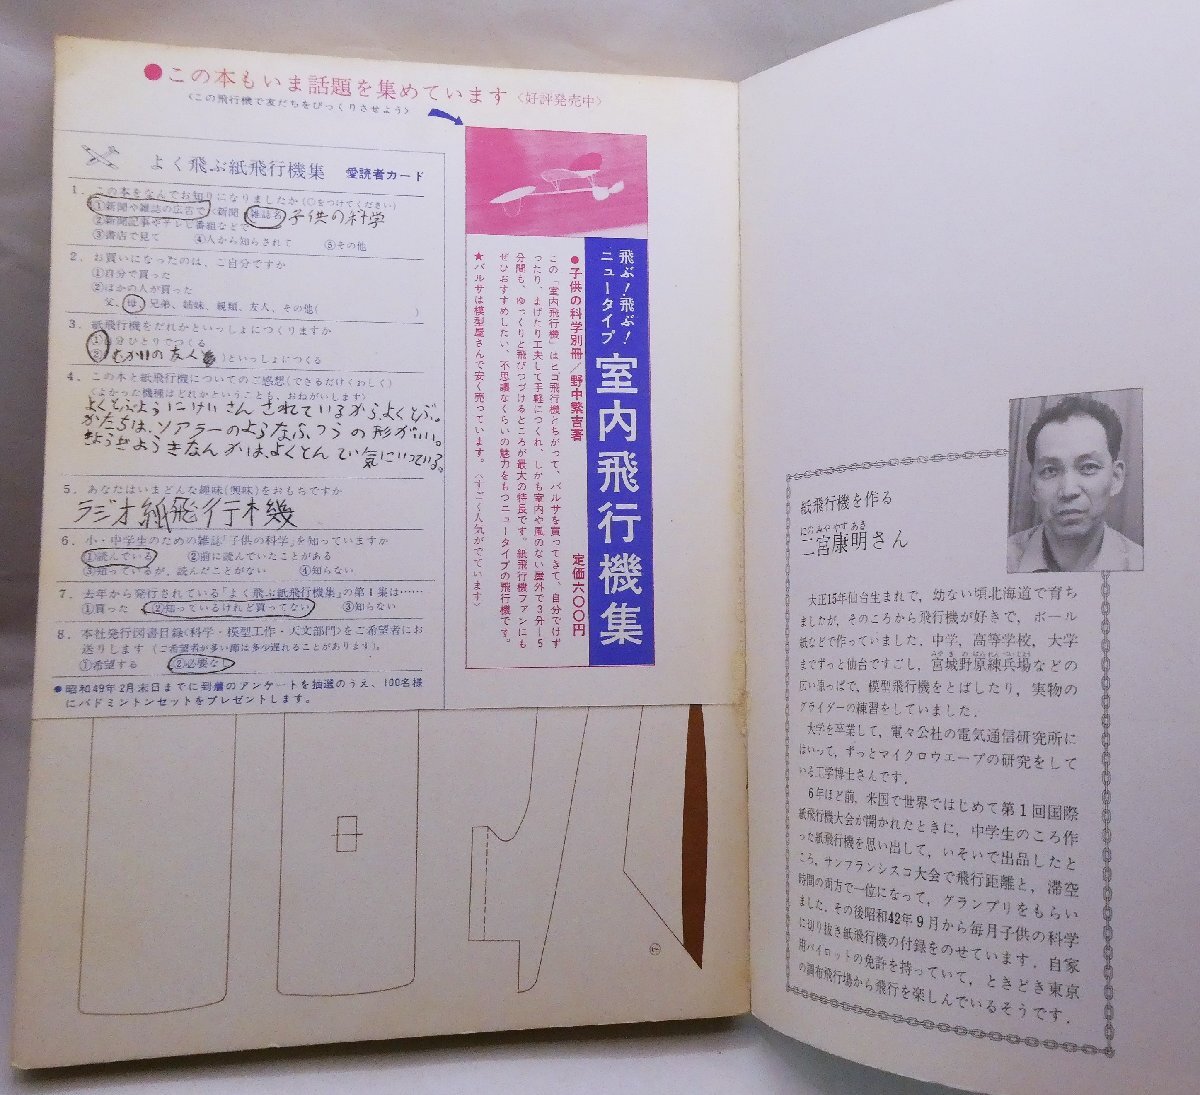 ●この本もいま話題を集めています〈好評発売中〉
〈この飛行機で友だちをびっくりさせよう〉
よく飛ぶ紙飛行機集 愛読者カード
1. この本をなんでお知りになりましたか(○をつけてください)
①新聞や雑誌の広告で〈新聞 雑誌名 子供の科学
②新聞記事やテレビ番組などで
③書店で見て ④人から知らされて ⑤その他
2. お買いになったのは、ご自分ですか
①自分で買った
②ほかの人が買った
父、母、兄弟、姉妹、親類、友人、その他( )
3. 紙飛行機をだれかといっしょにつくりますか
①自分ひとりでつくる
②むかいの友人)といっしょにつくる
4. この本と紙飛行機についてのご感想(できるだけくわしく)
(よかった機種はどれかということも、おねがいします)
よくとぶようにけいさんされているからよくとぶ。
かたちは、ソアラーのようなふつうの形がいい。
きょうぎようきなんかは、よくとんでい気にいっている。
5. あなたはいまどんな趣味(興味)をおもちですか
ラジオ紙飛行木幾
6. 小・中学生のための雑誌「子供の科学」を知っていますか
①読んでいる ②前に読んでいたことがある
③知っているが、読んだことがない ④知らない
7. 去年から発行されている「よく飛ぶ紙飛行機集」の第1集は……
①買った ②知っているけれど買ってない ③知らない
8. 本社発行図書目録(科学・模型工作・天文部門)をご希望者にお
送りします (ご希望者が多い節は多少遅れることがあります)。
①希望する ②必要ない
●昭和49年2月末日までに到着のアンケートを抽選のうえ、100名様
にバドミントンセットをプレゼントします。
飛ぶ!飛ぶ!
ニュータイプ
室内飛行機集
●子供の科学別冊/野中繁吉著
定価六〇〇円
この「室内飛行機」はヒゴ飛行機とちがって、バルサを買ってきて、自分でけず
ったり、まげたり工夫して手軽につくれ、しかも室内や風のない屋外で3分―5
分間も、ゆっくりと飛びつづけるところが最大の特長です。紙飛行機ファンにも
ぜひおすすめしたい、不思議なくらいの魅力をもつニュータイプの飛行機です。
★バルサは模型屋さんで安く売っています。〈すごく人気がでています〉
紙飛行機を作る
にのみややすあき
二宮康明さん
大正15年仙台生まれで、幼ない頃北海道で育ち
ましたが、そのころから飛行機が好きで、ボール
紙などで作っていました。中学、高等学校、大学
までずっと仙台ですごし、宮城野原練兵場などの
広い原っぱで、模型飛行機をとばしたり、実物の
グライダーの練習をしていました。
大学を卒業して、電々公社の電気通信研究所に
はいって、ずっとマイクロウエーブの研究をして
いる工学博士さんです。
6年ほど前、米国で世界ではじめて第1回国際
紙飛行機大会が開かれたときに、中学生のころ作
った紙飛行機を思い出して、いそいで出品したと
ころ、サンフランシスコ大会で飛行距離と、滞空
時間の両方で一位になって、グランプリをもらい
ました。その後昭和42年9月から毎月子供の科学
に切り抜き紙飛行機の付録をのせています。自家
用パイロットの免許を持っていて、ときどき東京
の調布飛行場から飛行を楽しんでいるそうです。